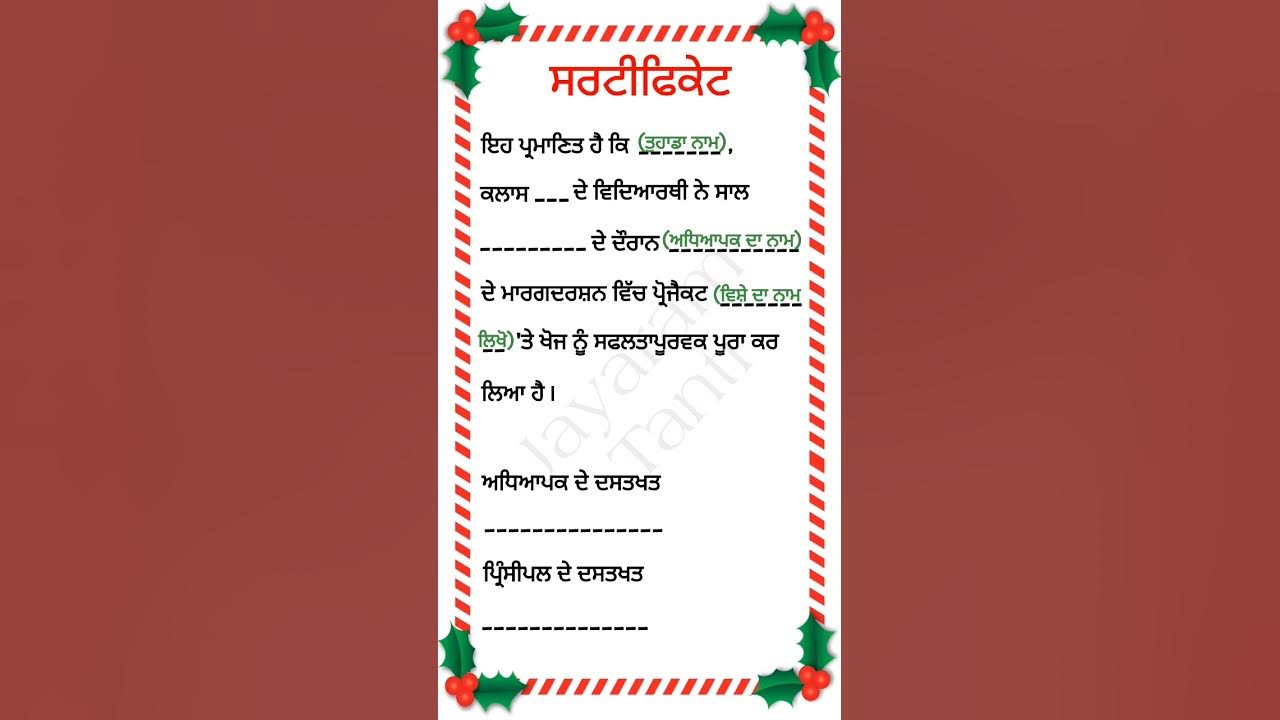 ਸਰਟੀਫਿਕੇਟ
ਇਹ ਪ੍ਰਮਾਣਿਤ ਹੈ ਕਿ (ਤੁਹਾਡਾ ਨਾਮ),
ਕਲਾਸ ___ ਦੇ ਵਿਦਿਆਰਥੀ ਨੇ ਸਾਲ
_________ ਦੇ ਦੌਰਾਨ (ਅਧਿਆਪਕ ਦਾ ਨਾਮ)
ਦੇ ਮਾਰਗਦਰਸ਼ਨ ਵਿੱਚ ਪ੍ਰੋਜੈਕਟ (ਵਿਸ਼ੇ ਦਾ ਨਾਮ
ਲਿਖੋ) 'ਤੇ ਖੋਜ ਨੂੰ ਸਫਲਤਾਪੂਰਵਕ ਪੂਰਾ ਕਰ
ਲਿਆ ਹੈ।
Jayaram
Tanti
ਅਧਿਆਪਕ ਦੇ ਦਸਤਖਤ
_______________
ਪ੍ਰਿੰਸੀਪਲ ਦੇ ਦਸਤਖਤ
______________